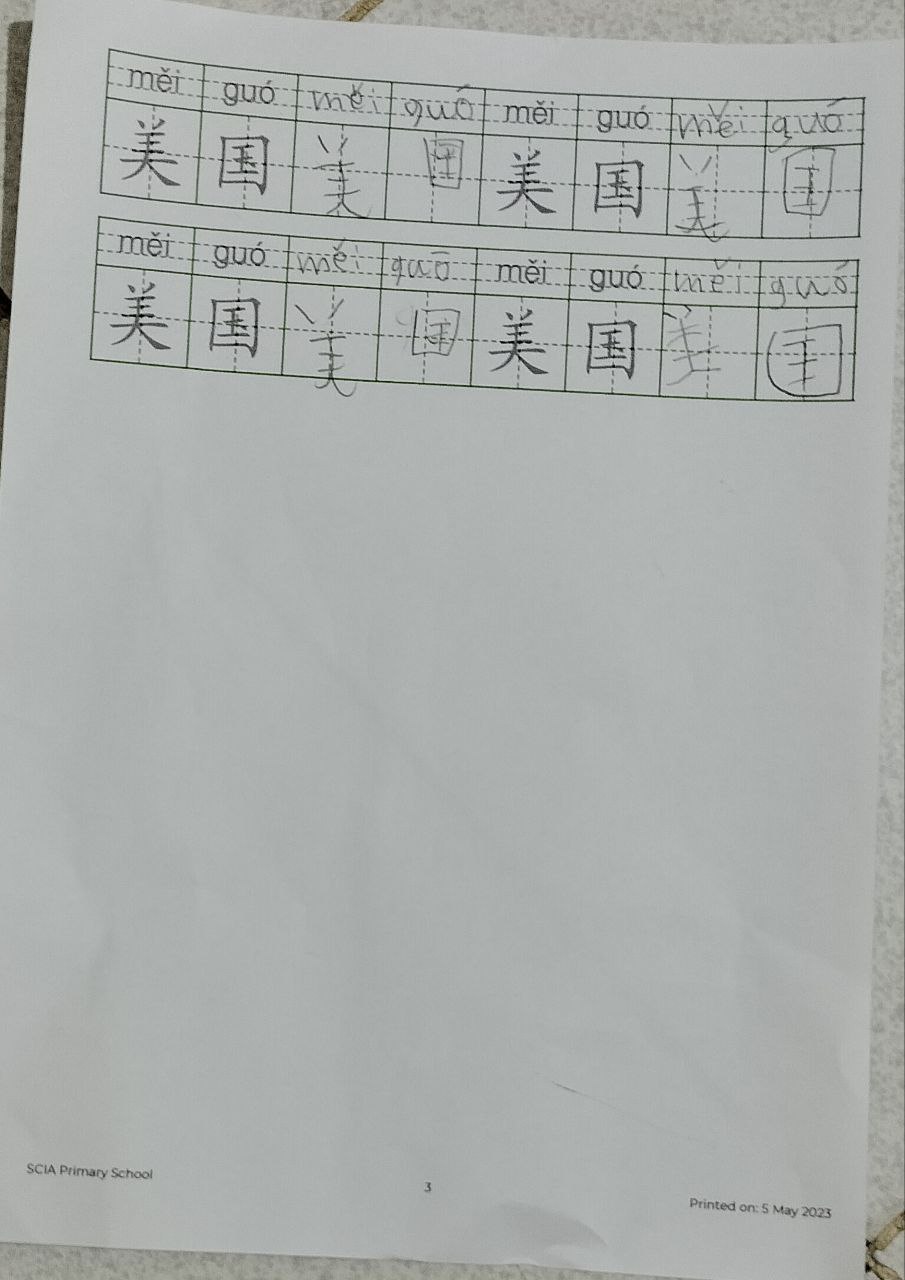 měi guó měi guō měi guó měi guō
美 国 美 国 美 国 美 国
měi guó měi guō měi guó měi guó
美 国 美 国 美 国 美 国
SCIA Primary School
3
Printed on: 5 May 2023